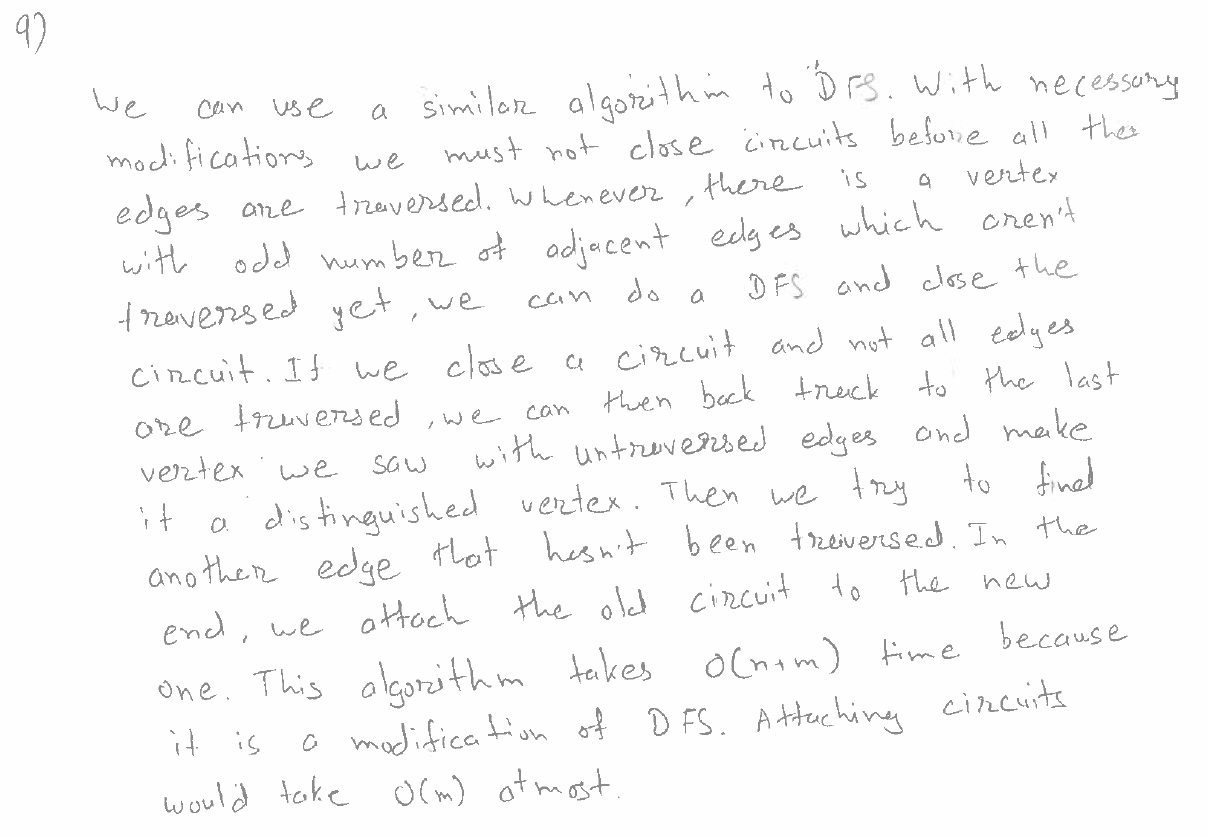 9)
We can use a similar algorithm to DFS. With necessary
modifications we must not close circuits before all the
edges are traversed. Whenever, there is a vertex
with odd number of adjacent edges which aren't
traversed yet, we can do a DFS and close the
circuit. If we close a circuit and not all edges
are traversed, we can then back track to the last
vertex we saw with untraversed edges and make
it a distinguished vertex. Then we try to find
another edge that hasn't been traversed. In the
end, we attach the old circuit to the new
one. This algorithm takes O(n+m) time because
it is a modification of DFS. Attaching circuits
would take O(m) atmost.